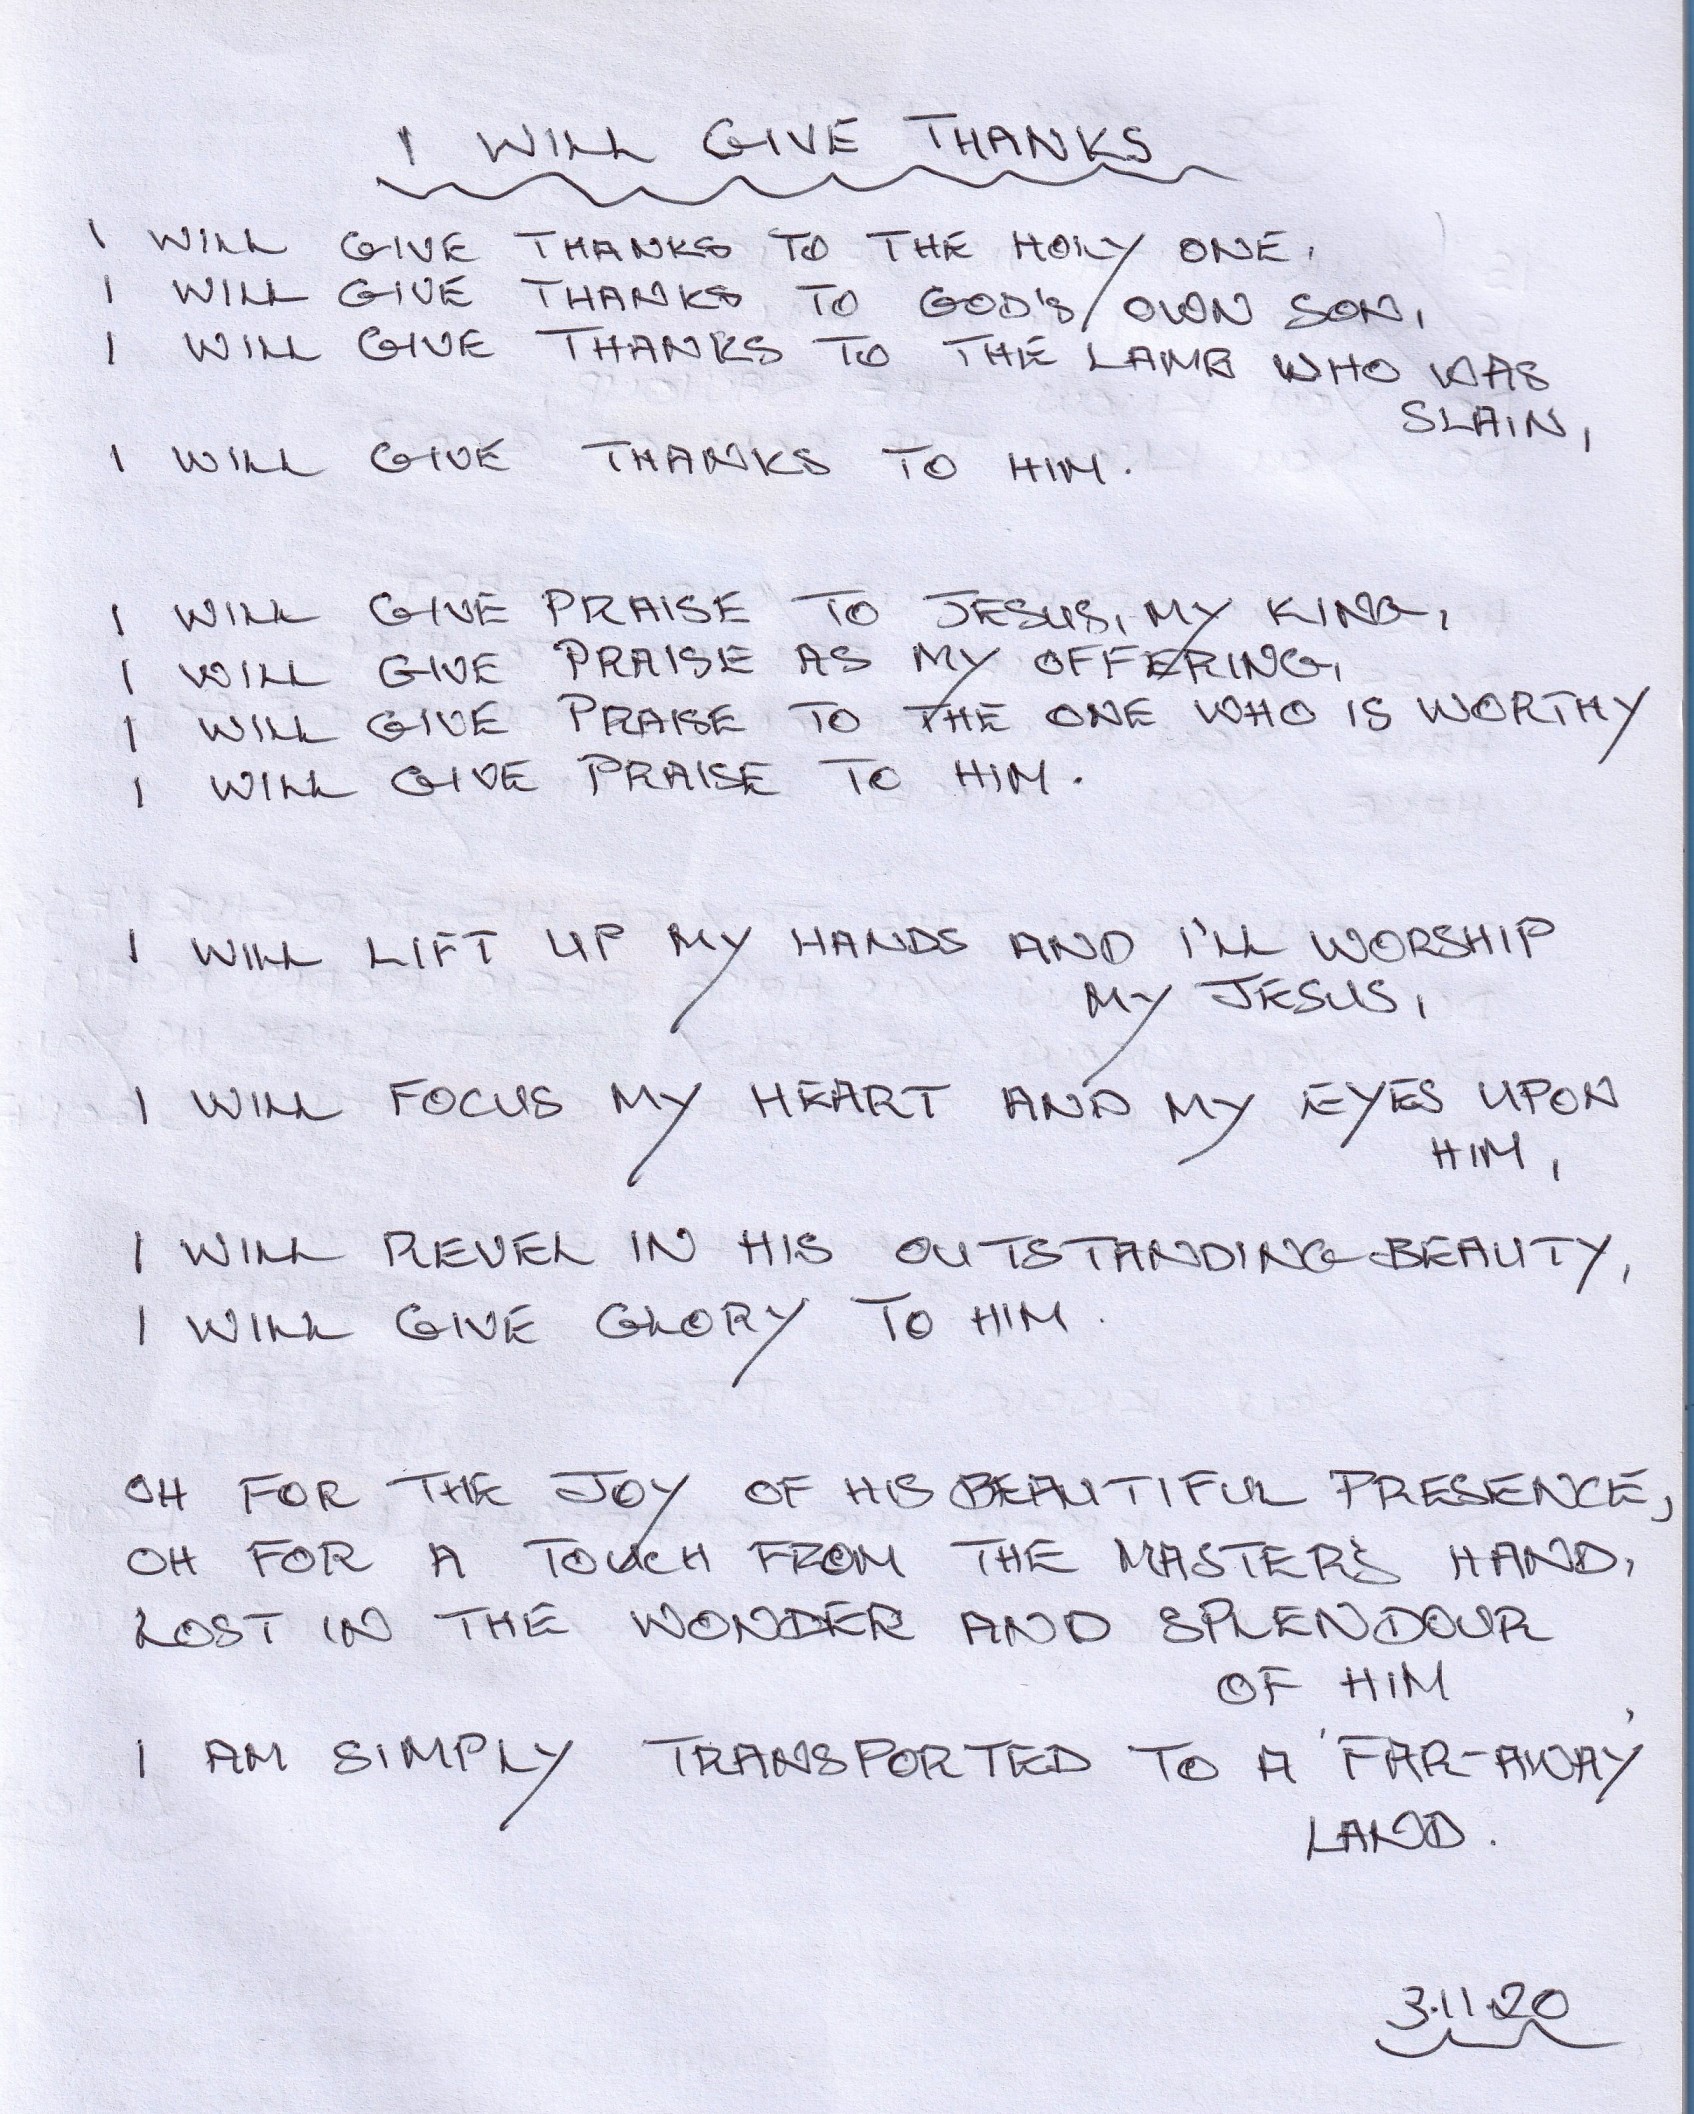 I WILL GIVE THANKS
I WILL GIVE THANKS TO THE HOLY ONE,
I WILL GIVE THANKS TO GOD'S OWN SON,
I WILL GIVE THANKS TO THE LAMB WHO WAS
SLAIN,
I WILL GIVE THANKS TO HIM.
I WILL GIVE PRAISE TO JESUS, MY KING,
I WILL GIVE PRAISE AS MY OFFERING,
I WILL GIVE PRAISE TO THE ONE WHO IS WORTHY
I WILL GIVE PRAISE TO HIM.
I WILL LIFT UP MY HANDS AND I'LL WORSHIP
MY JESUS,
I WILL FOCUS MY HEART AND MY EYES UPON
HIM,
I WILL REVEL IN HIS OUTSTANDING BEAUTY,
I WILL GIVE GLORY TO HIM.
OH FOR THE JOY OF HIS BEAUTIFUL PRESENCE,
OH FOR A TOUCH FROM THE MASTER'S HAND,
LOST IN THE WONDER AND SPLENDOUR
OF HIM
I AM SIMPLY TRANSPORTED TO A 'FAR-AWAY'
LAND.
3.11.20